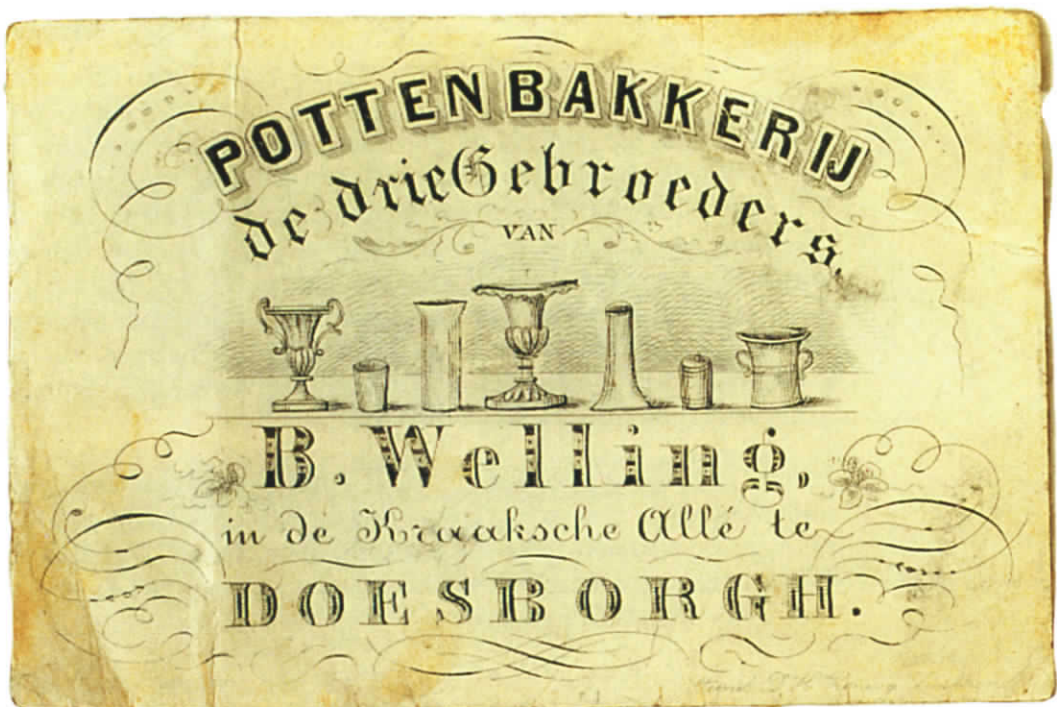 POTTENBAKKERIJ
de drie Gebroeders,
VAN
B. Welling,
in de Kraaksche Allé te
DOESBORGH.